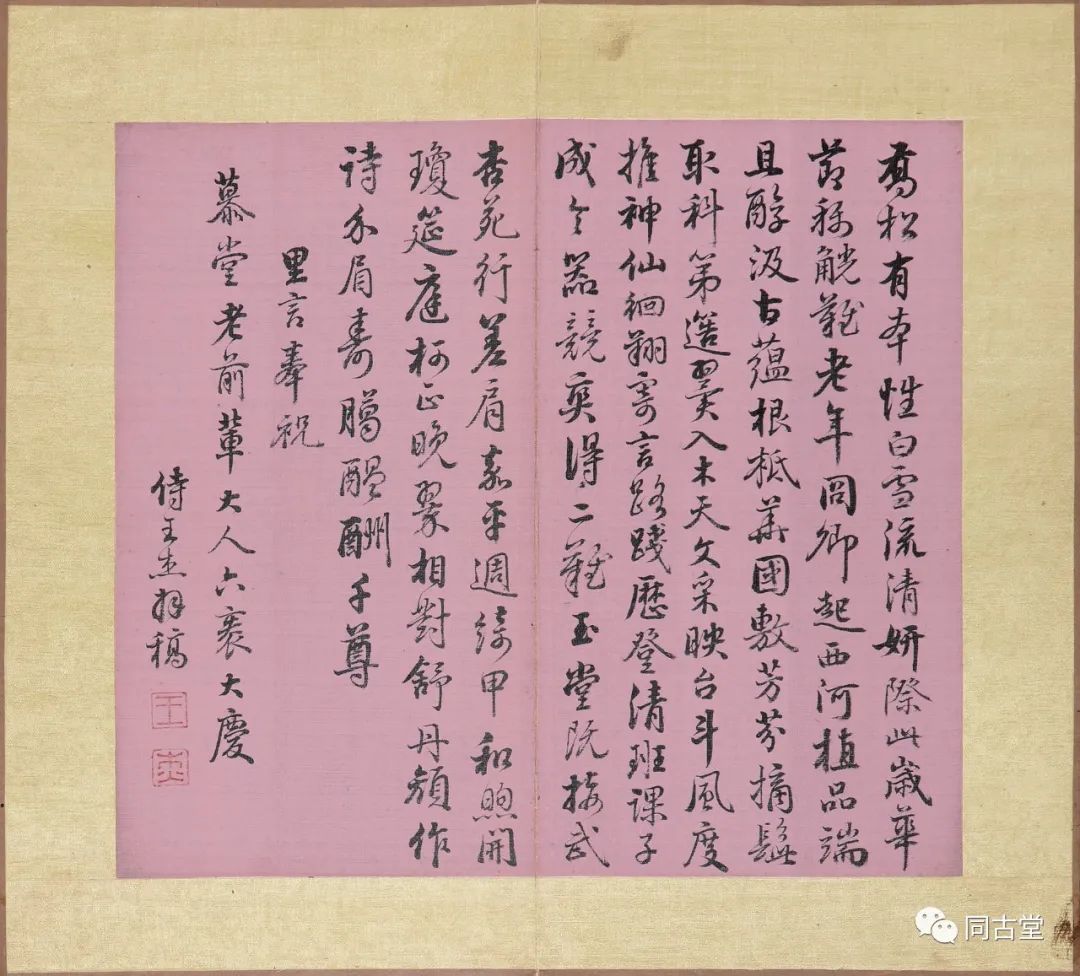 喬松有本性白雪流清妍際此歲華
節稱觥難老年冏卿起西河植品端
且醇汲古蘊根柢華國敷芳芬摘髭
取科第選翼入木天文采映台斗風度
推神仙徊翔寄言路踐歷登清班課子
成令器競爽得二難玉堂既接武
杏苑行差肩嘉平週綺甲和煦開
瓊筵庭柯正晚翠相對舒丹顏作
詩介眉壽臈醞酬千尊
里言奉祝
慕堂老前輩大人六袠大慶
侍王杰拜稿
王
杰
同古堂